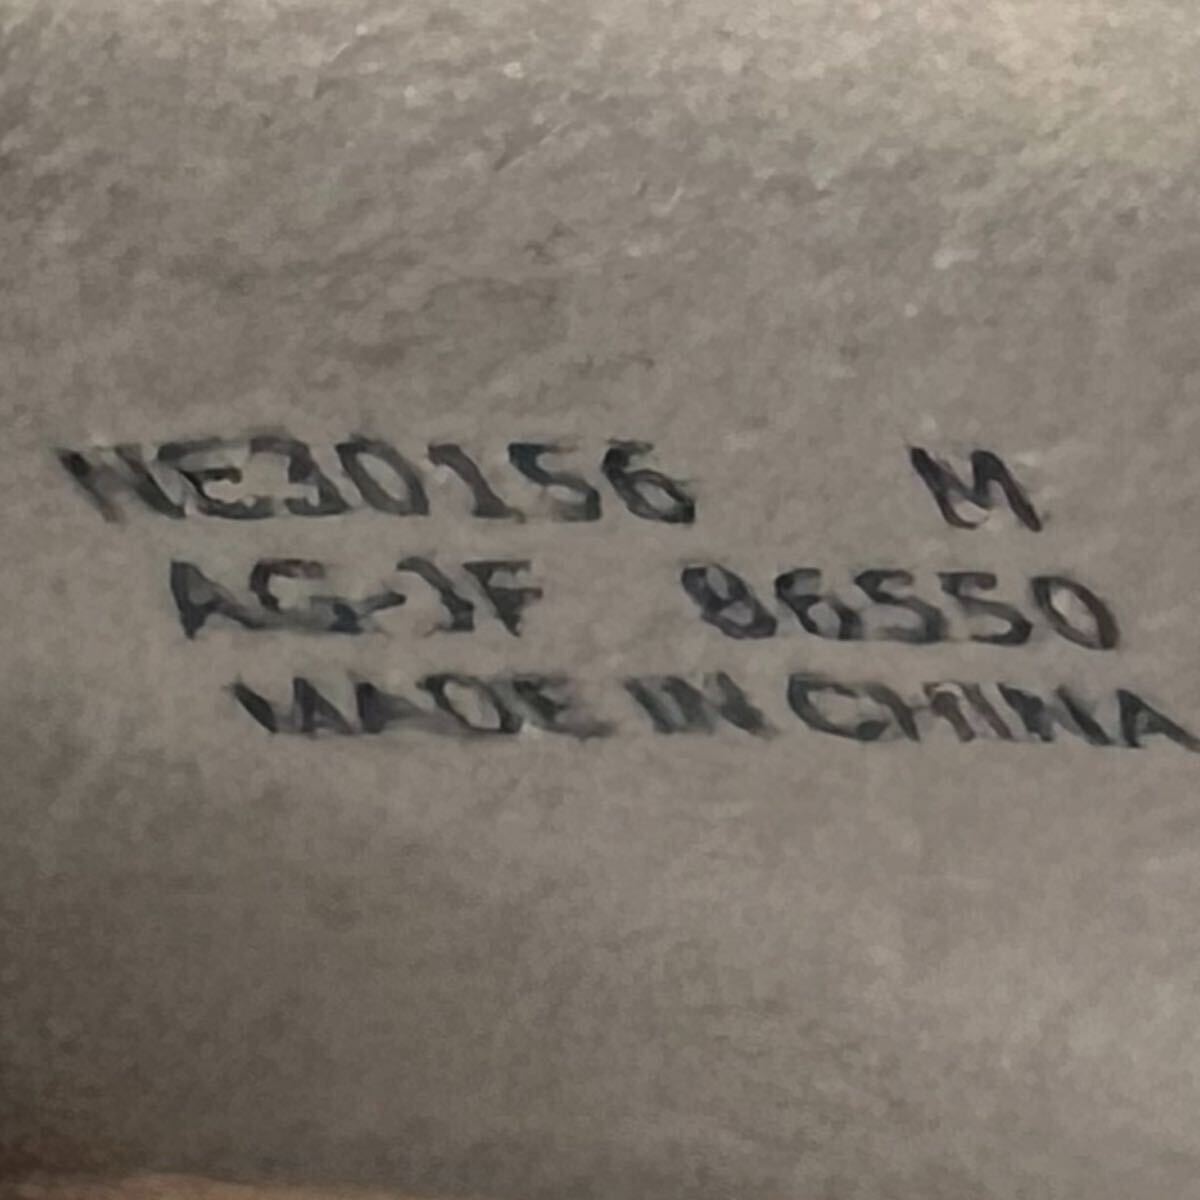 NE30156 M
AG-1F 86550
MADE IN CHINA